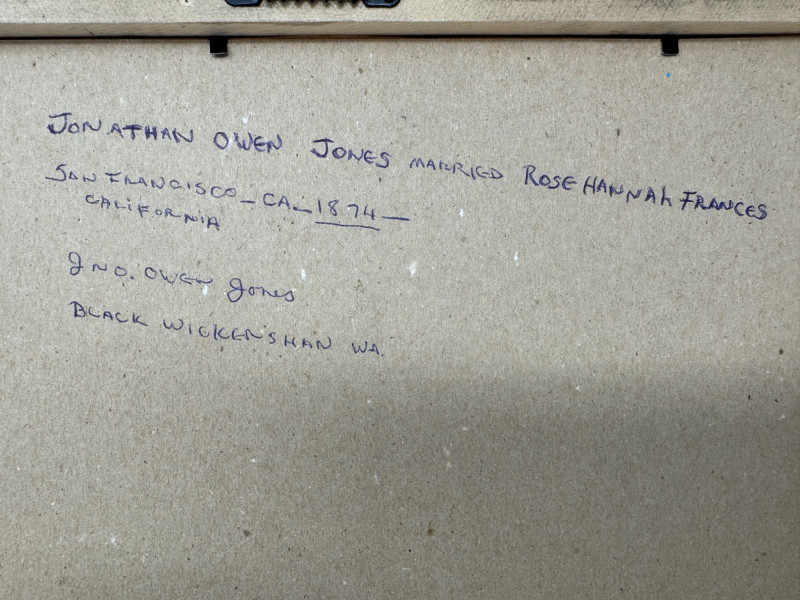 JONATHAN OWEN JONES MARRIED ROSE HANNAh FRANCES
SAN FRANCISCO - CA. - 1874 -
CALIFORNIA
JNO. OWEN Jones
BLACK WICKENSHAN WA.